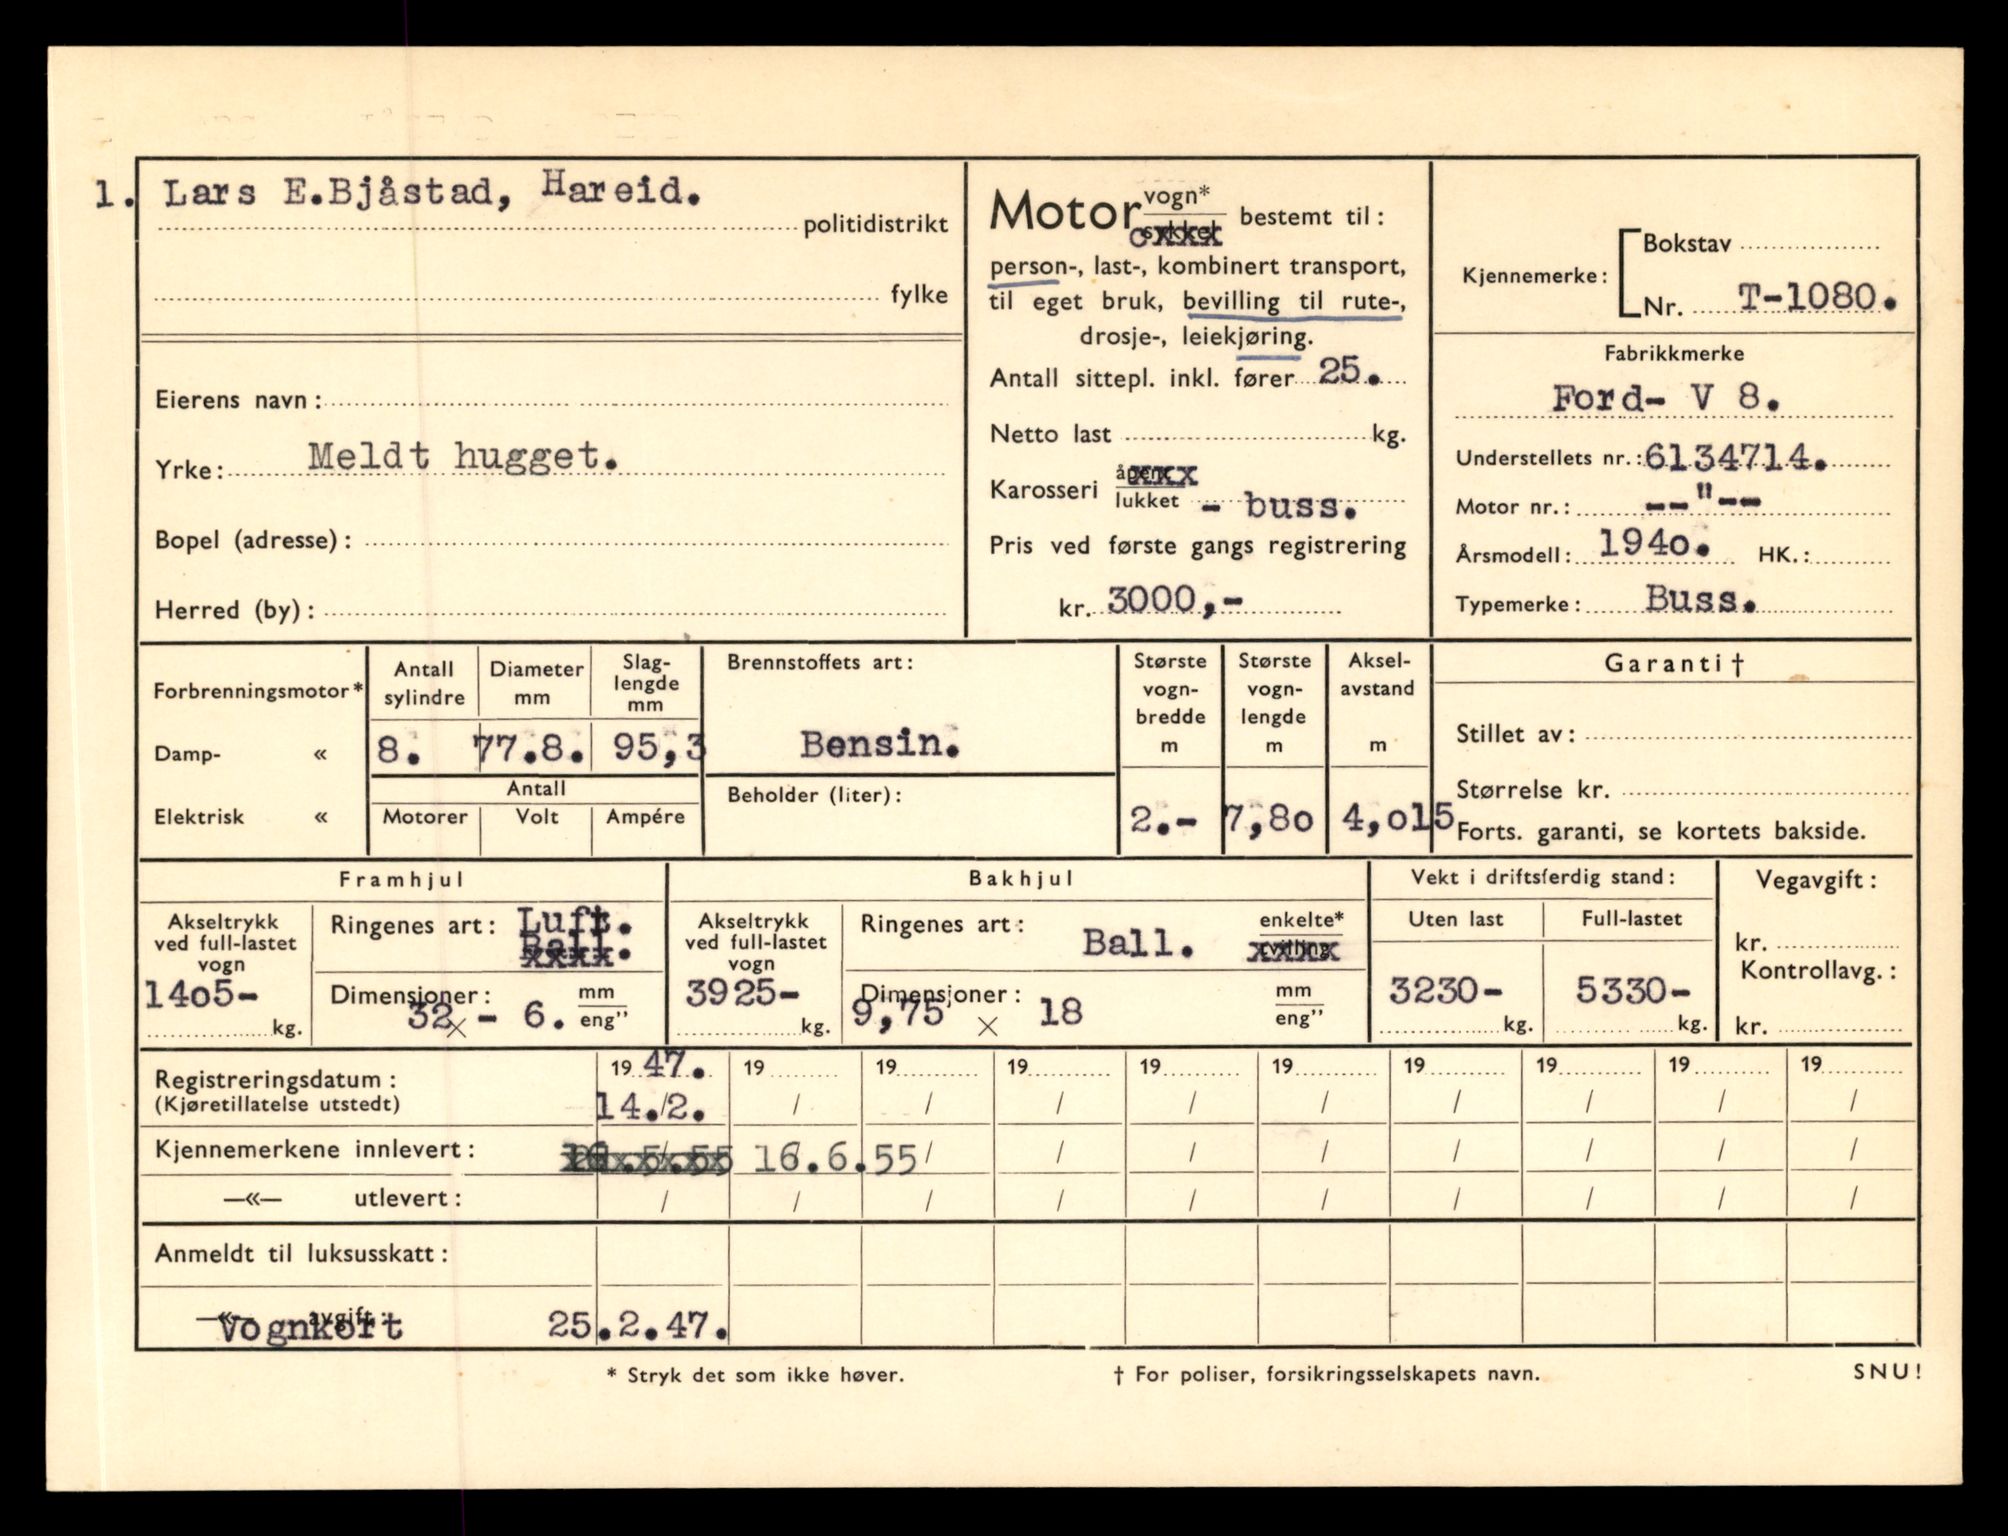 1. Lars E.Bjåstad, Hareid.
politidistrikt
fylke
Eierens navn:
Yrke: Meldt hugget.
Bopel (adresse):
Herred (by):
Motor vogn* sykkel bestemt til:
person-, last-, kombinert transport,
til eget bruk, bevilling til rute-,
drosje-, leiekjøring.
Antall sittepl. inkl. fører 25.
Netto last kg.
Karosseri åpent lukket - buss.
Pris ved første gangs registrering
kr. 3000,-
Kjennemerke:
Bokstav
Nr. T-1080.
Fabrikkmerke
Ford- V 8.
Understellets nr.: 6134714.
Motor nr.: --"--
Årsmodell: 1940. HK.:
Typemerke: Buss.
Forbrenningsmotor*
Damp- «
Elektrisk «
Antall sylindre
Diameter mm
Slag-lengde mm
8. 77.8. 95,3
Antall
Motorer Volt Ampére
Brennstoffets art:
Bensin.
Beholder (liter):
Største vogn-bredde m
Største vogn-lengde m
Aksel-avstand m
2.- 7,80 4,015
Garanti †
Stillet av:
Størrelse kr.
Forts. garanti, se kortets bakside.
Framhjul
Akseltrykk ved full-lastet vogn
1405- kg.
Ringenes art: Luft.
Ball.
Dimensjoner: mm eng"
32 x - 6.
Bakhjul
Akseltrykk ved full-lastet vogn
3925- kg.
Ringenes art: Ball. enkelte* tvilling
Dimensjoner: mm eng"
9,75 x 18
Vekt i driftsferdig stand:
Uten last Full-lastet
3230- kg. 5330- kg.
Vegavgift:
kr.
Kontrollavg.:
kr.
Registreringsdatum: 19 47. 19 19 19 19 19 19 19 19 19
(Kjøretillatelse utstedt) 14./2. / / / / / / / / /
Kjennemerkene innlevert: 16.5.55 16.6.55 / / / / / / / /
—«— utlevert: / / / / / / / / / /
Anmeldt til luksusskatt:
—«— avgift:
Vognkort 25.2.47.
* Stryk det som ikke høver.
† For poliser, forsikringsselskapets navn.
SNU!